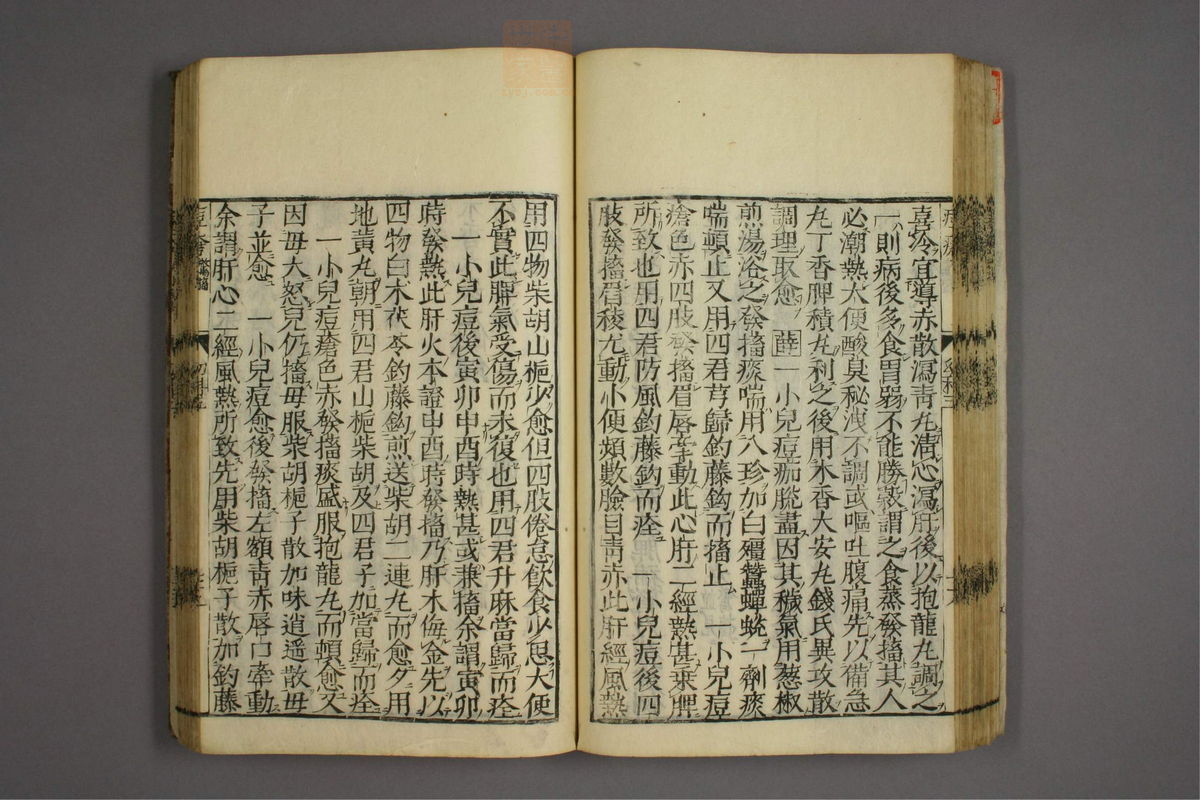 喜冷宜導赤散瀉靑丸淸心瀉肝後以抱龍丸調之
一則病後多食胃弱不能勝穀謂之食蒸發搐其人
必潮熱大便酸臭秘洩不調或嘔吐腹痛先以備急
丸丁香脾積丸利之後用木香大安丸錢氏異攻散
調理取愈 薛 一小兒痘痂脫盡因其穢氣用葱椒
煎湯浴之發搐痰喘用八珍加白殭蠶蟬蛻二劑痰
喘頓止又用四君芎歸鈎藤鈎而搐止 一小兒痘
瘡色赤四肢發搐眉唇牽動此心肝二經熱甚乘脾
所致也用四君防風鈎藤鈎而痊 一小兒痘後四
肢發搐眉稜尤動小便頻數臉目靑赤此肝經風熱
用四物柴胡山梔少愈但四肢倦怠飮食少思大便
不實此脾氣受傷而未復也用四君升麻當歸而痊
一小兒痘後寅卯申酉時熱甚或兼搐余謂寅卯
時發熱此肝火本證申酉時發搐乃肝木侮金先以
四物白木茯苓鈎藤鈎煎送柴胡二連丸而愈夕用
地黃丸朝用四君山梔柴胡及四君子加當歸而痊
一小兒痘瘡色赤發搐痰盛服抱龍丸而頓愈又
因毋大怒兒仍搐毋服柴胡梔子散加味逍遥散毋
子並愈 一小兒痘愈後發搐左額靑赤唇口牽動
余謂肝心二經風熱所致先用柴胡梔子散加鈎藤